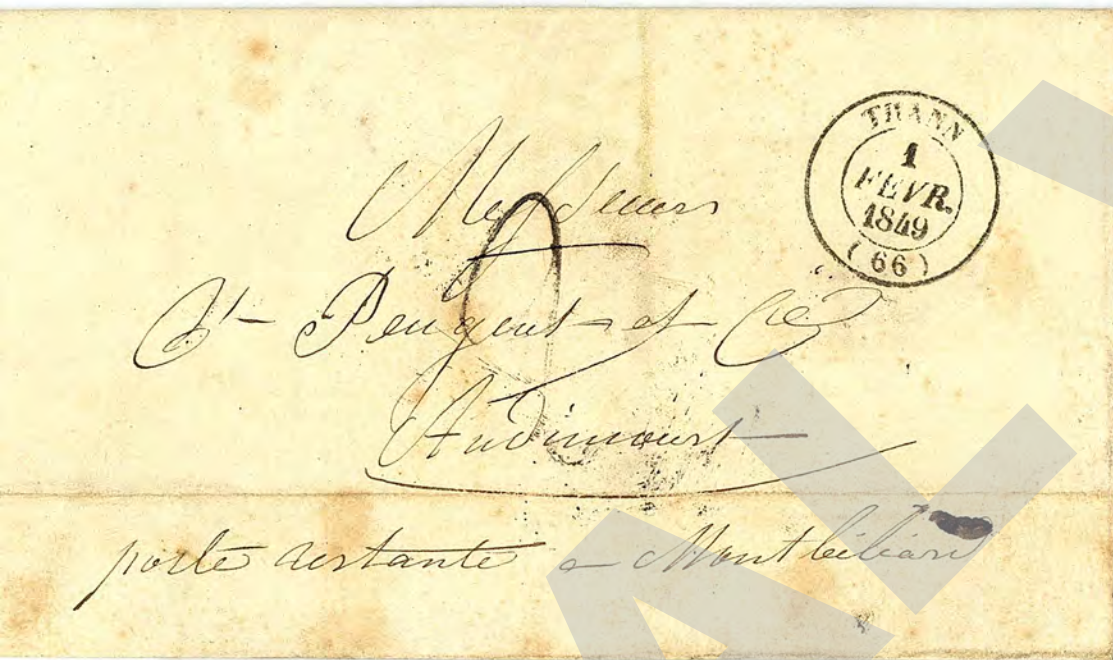 THANN
1
FEVR.
1849
(66)
Messieurs
Peugeot et Cie
Audincourt
poste restante a Montbéliard